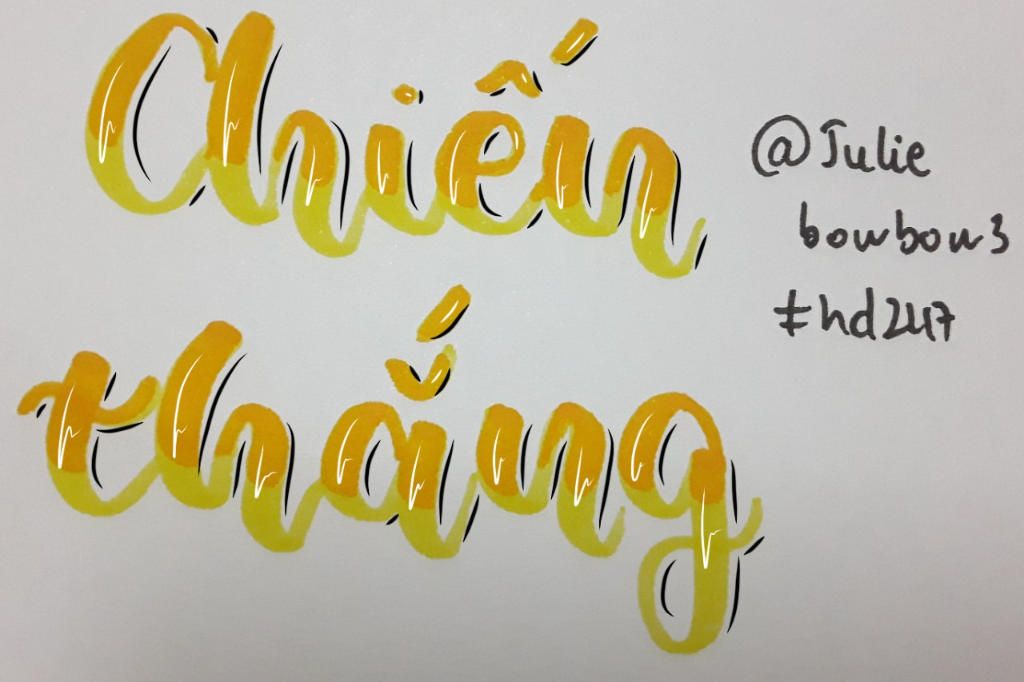 Chiến
thắng
@Julie
bowbow3
#hd247